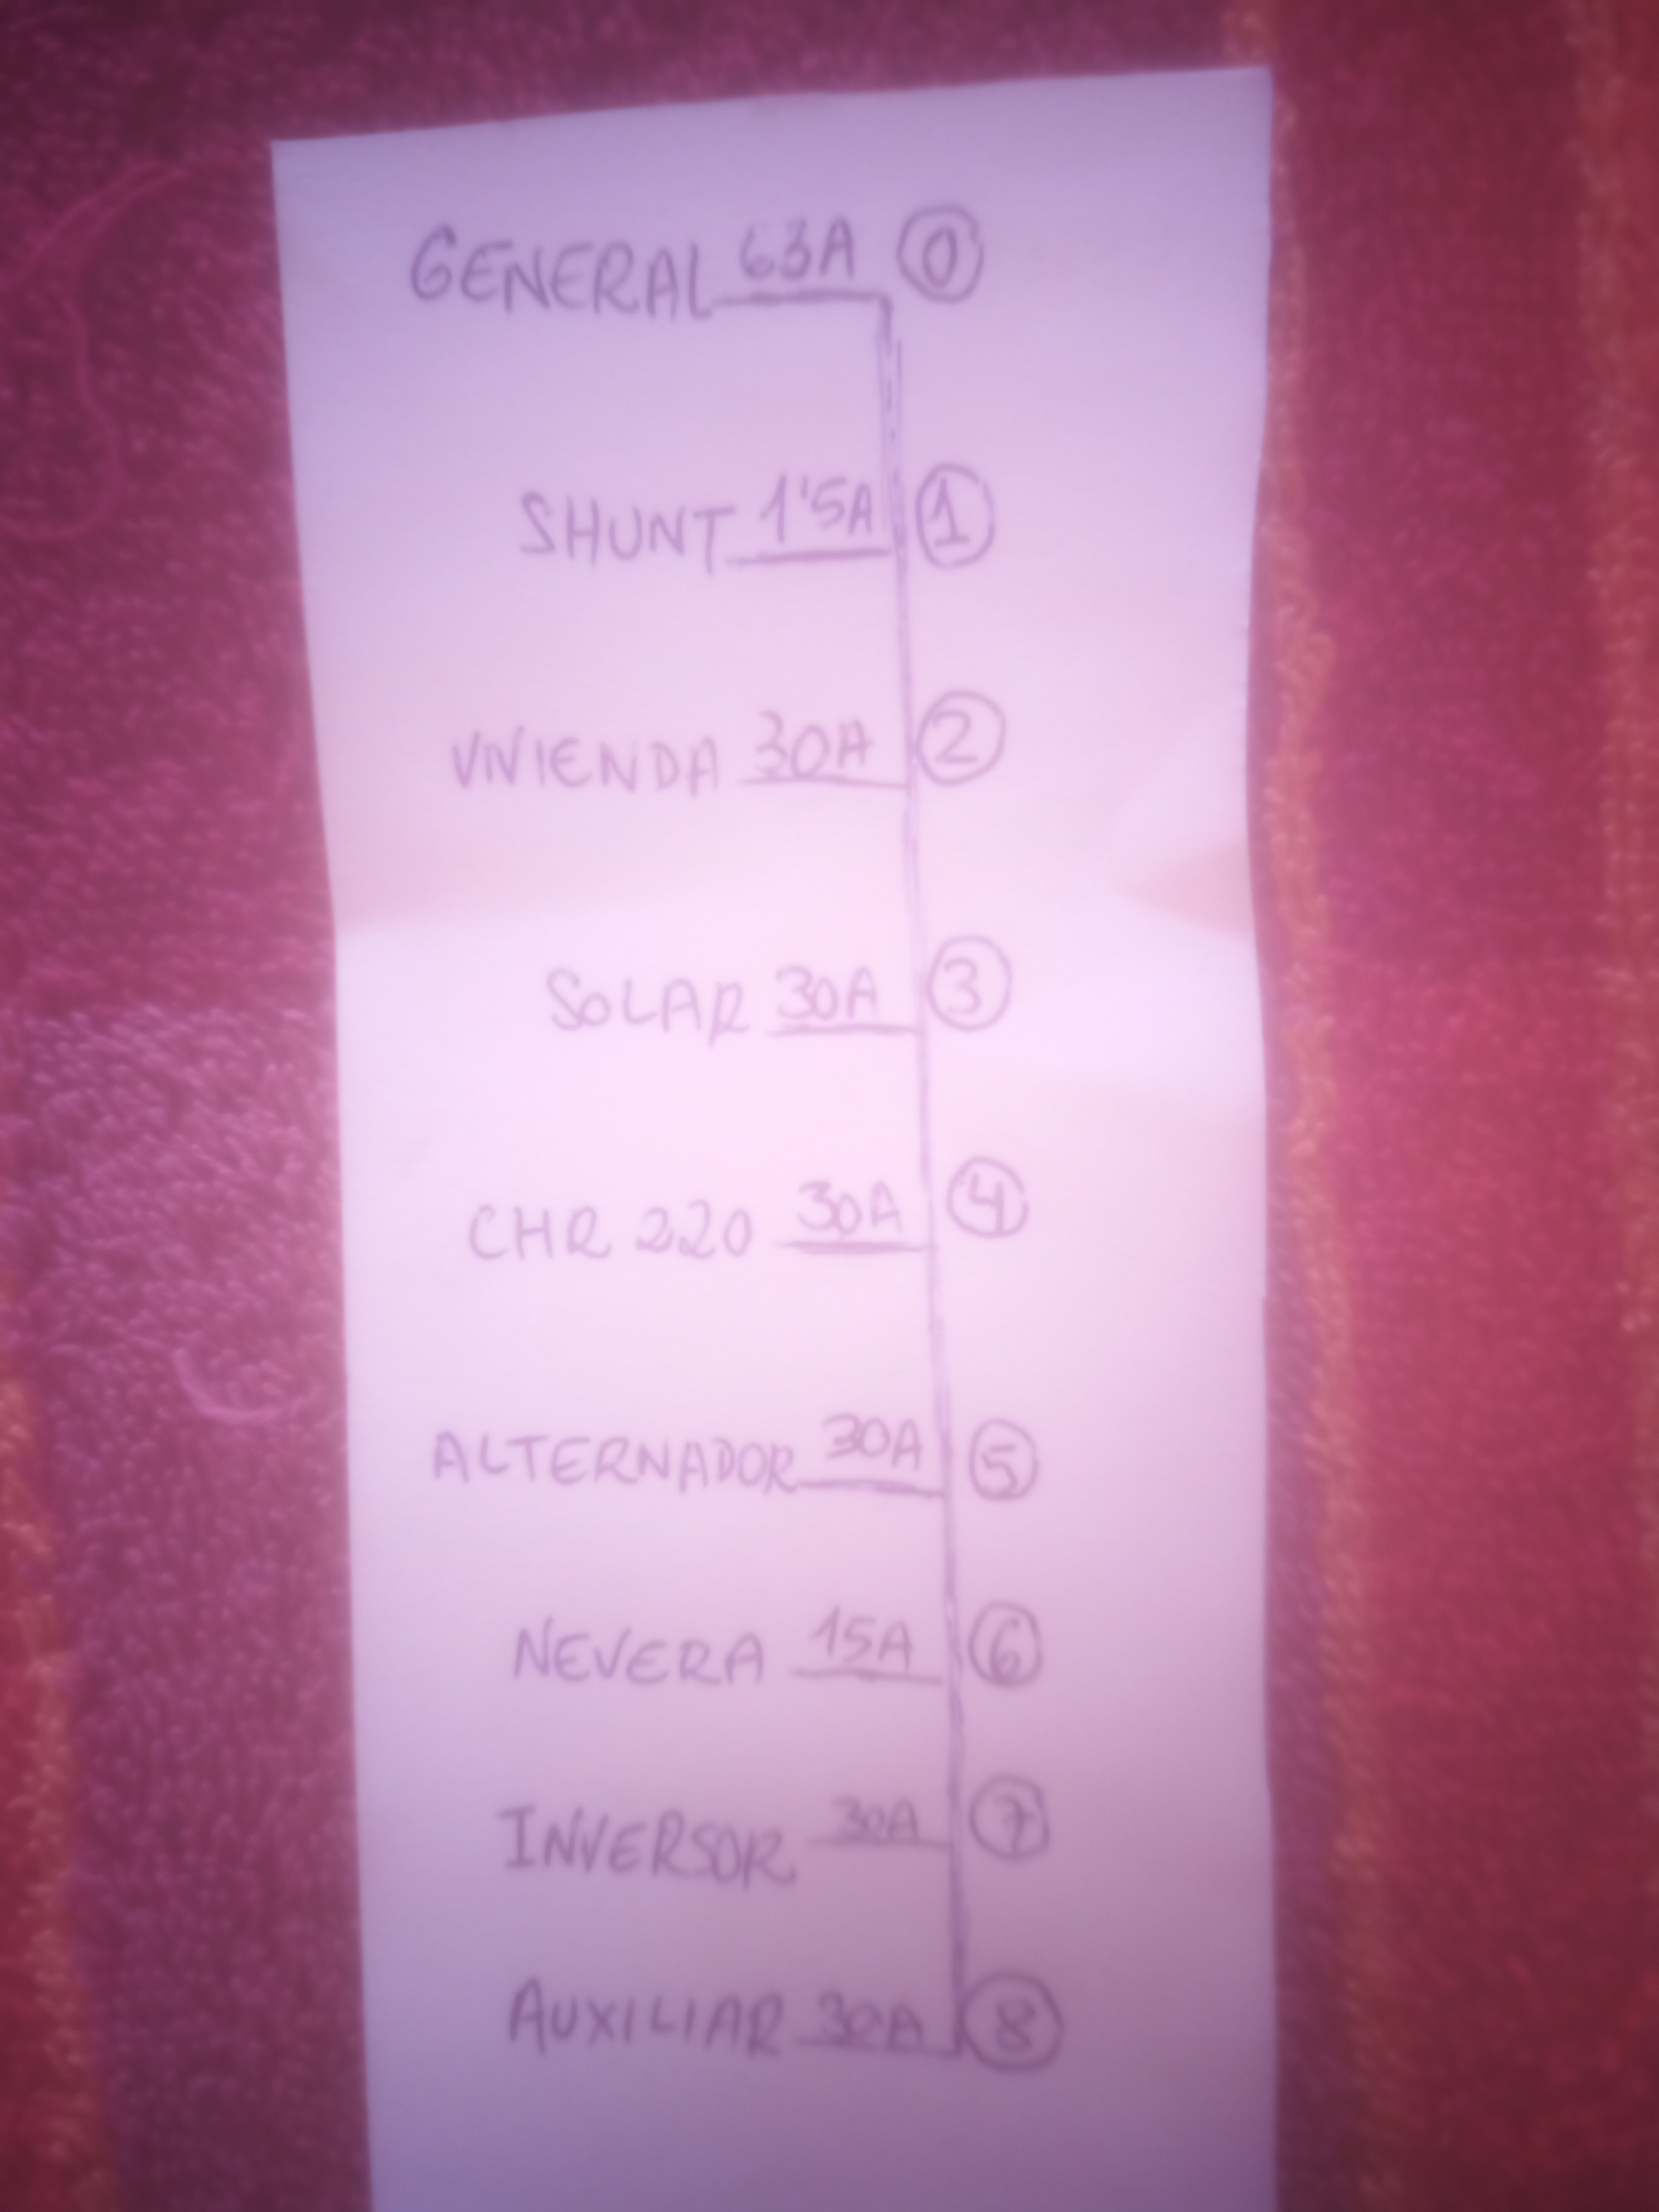 GENERAL 63A 0
SHUNT 1'5A 1
VIVIENDA 30A 2
SOLAR 30A 3
CHR 220 30A 4
ALTERNADOR 30A 5
NEVERA 15A 6
INVERSOR 30A 7
AUXILIAR 30A 8